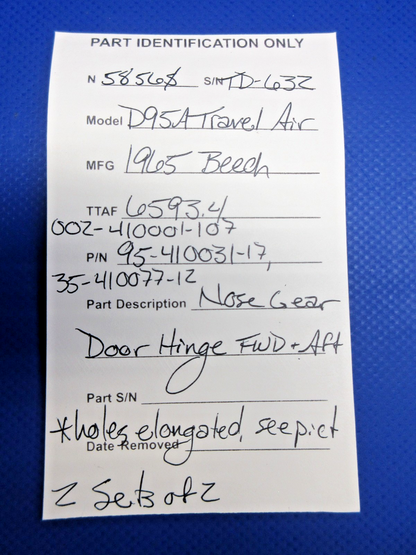 PART IDENTIFICATION ONLY
N 58568 S/N TD-632
Model D95A Travel Air
MFG 1965 Beech
TTAF 6593.4
002-410001-107
P/N 95-410031-17,
35-410077-12
Part Description Nose Gear
Door Hinge FWD + Aft
Part S/N
*holes elongated, see pict
Date Removed
2 Sets of 2